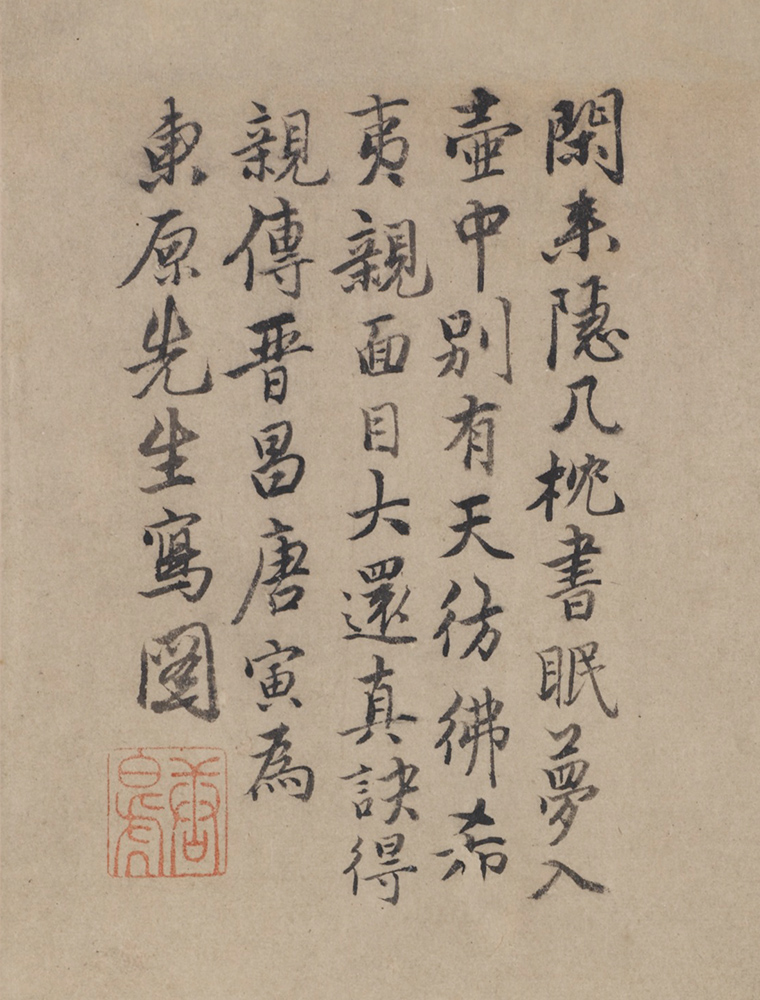 閑来隱几枕書眠夢入
壺中別有天彷彿希
夷親面目大還真訣得
親傳晋昌唐寅為
東原先生寫圖
唐居士